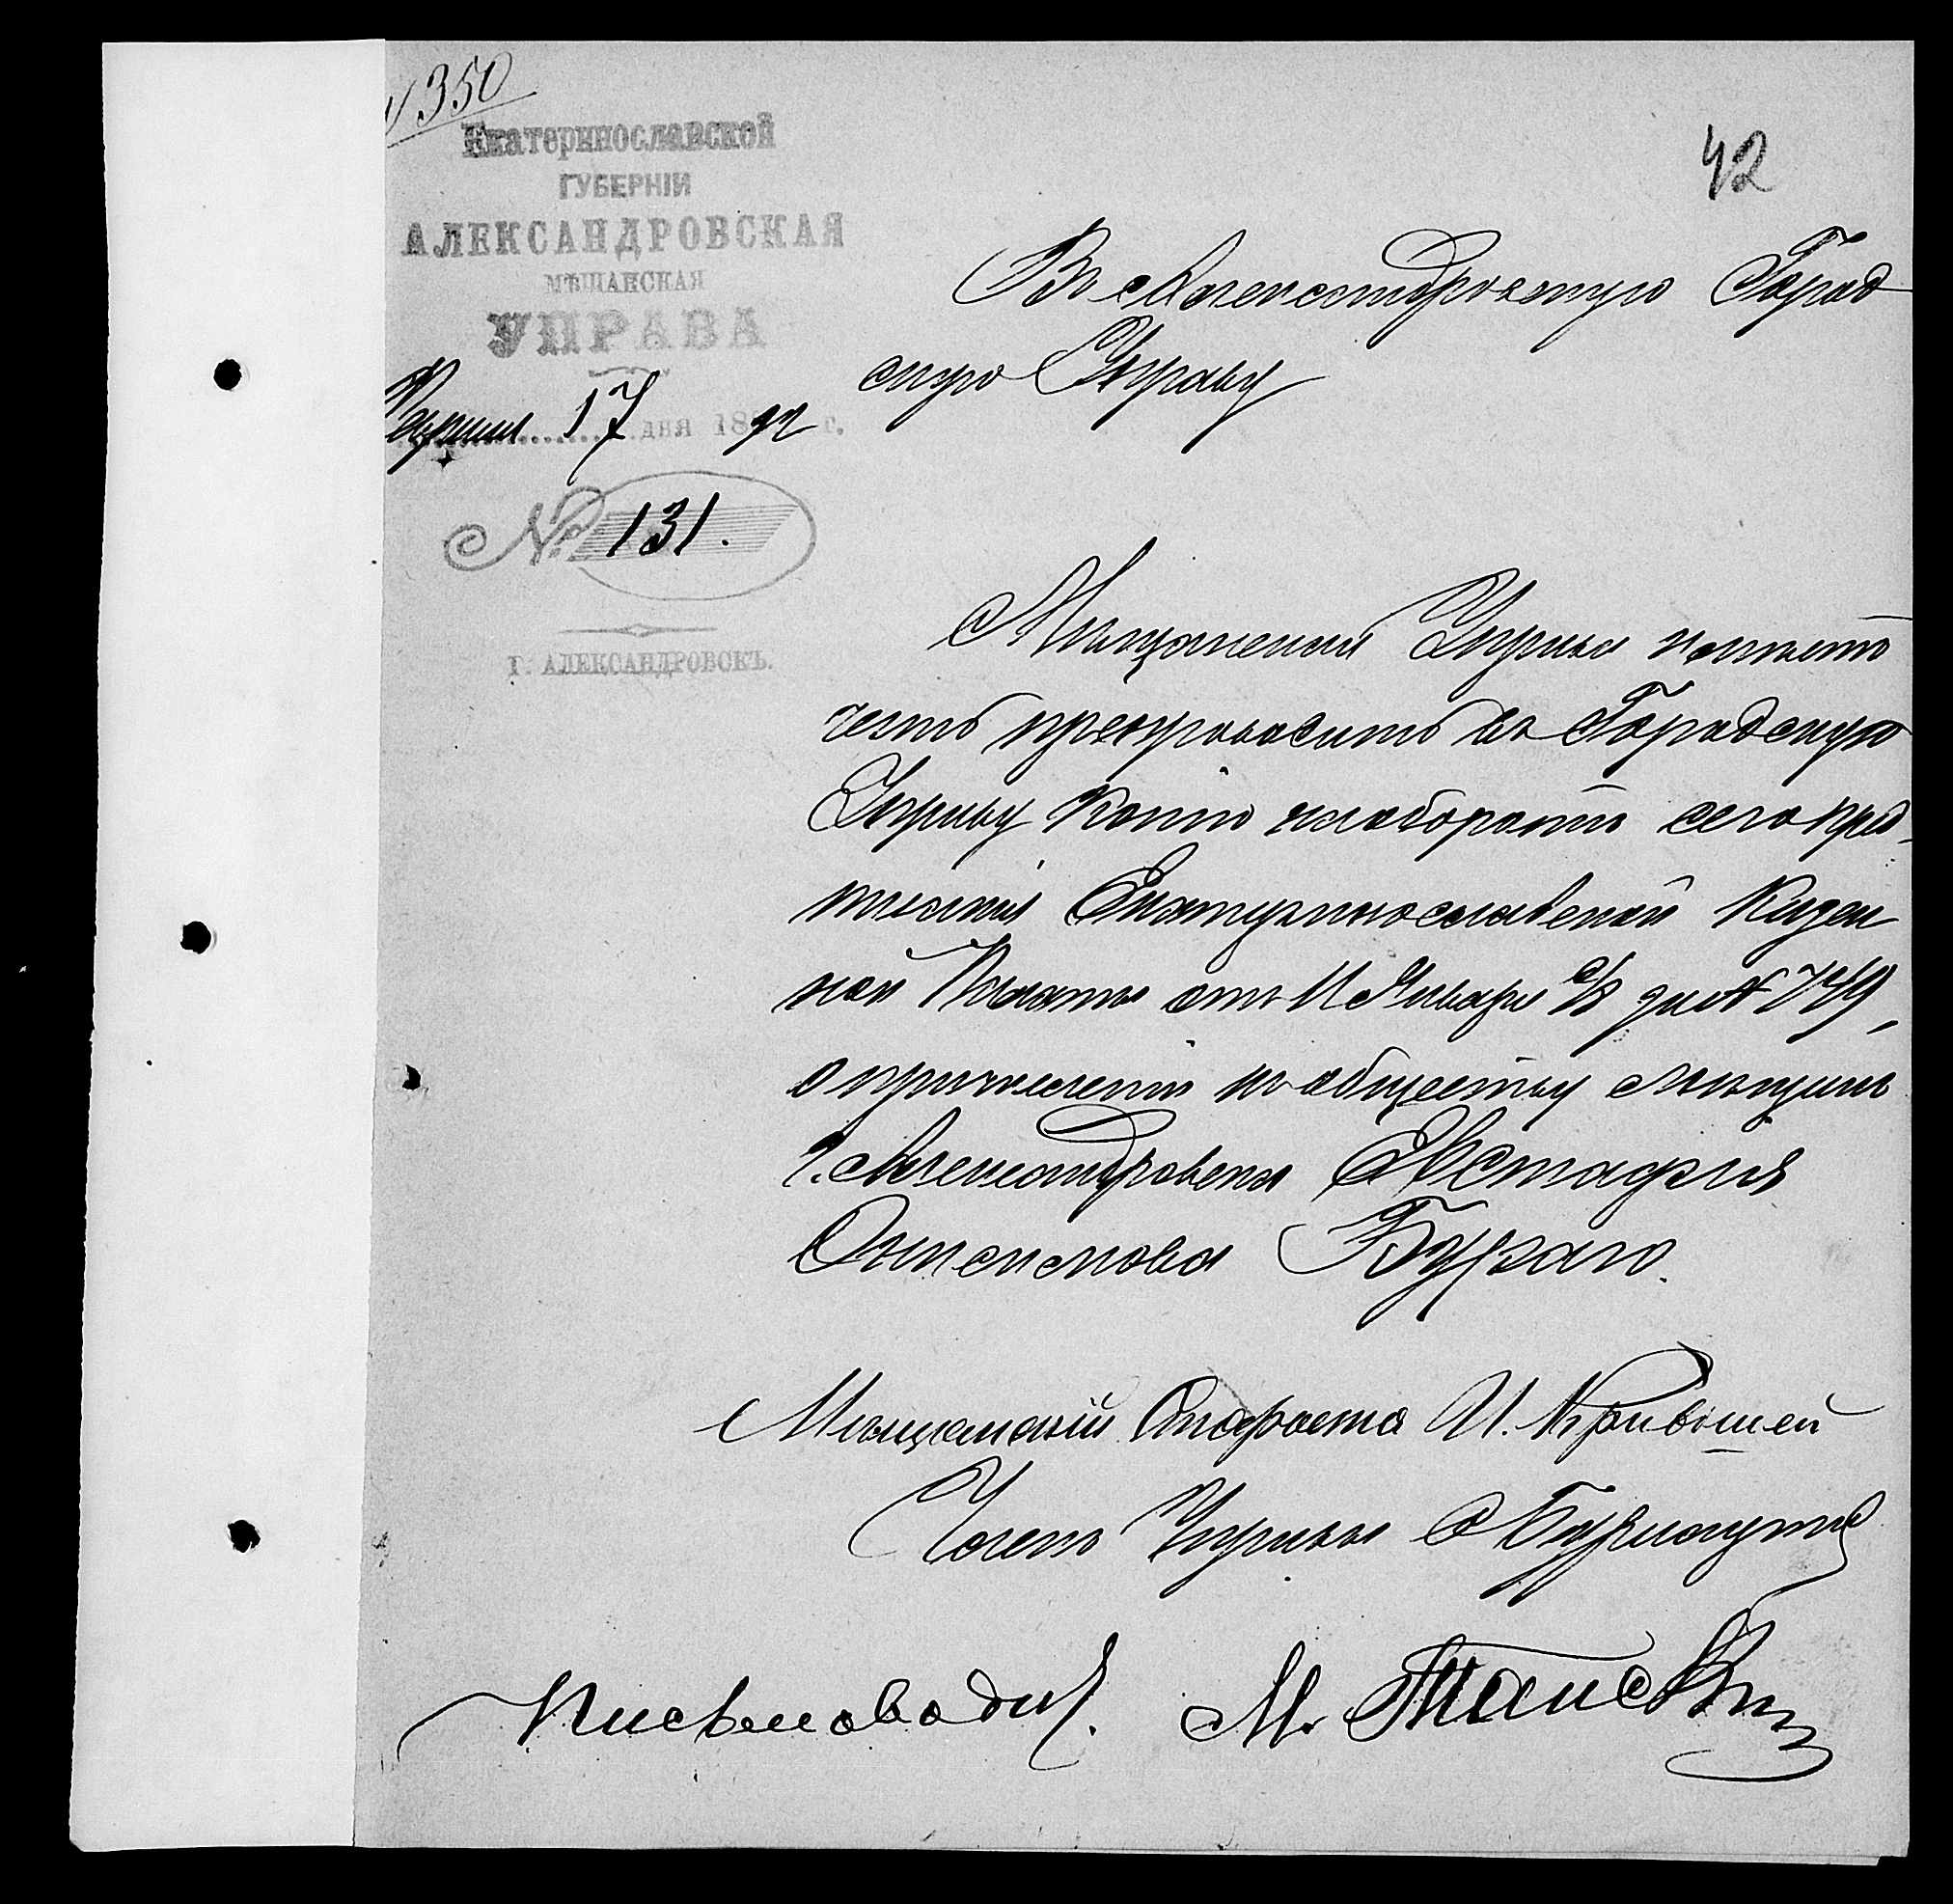 № 350
42
Екатеринославской
ГУБЕРНІИ
АЛЕКСАНДРОВСКАЯ
МѢЩАНСКАЯ
УПРАВА
17 дня 1892 г.
№ 131.
Г. АЛЕКСАНДРОВСКЪ.
Въ Александровскую Город
скую Управу
Мѣщанская Управа имѣетъ
честь препроводить въ Городскую
Управу копію съ пред
писанія Екатеринославской Казен
ной Палаты отъ 11 Января с/г за № 749,
о причисленіи къ обществу мѣщанъ
г. Александровска Евстафія
Онисимова Бураго.
Мѣщанскій Староста И. Кривошей
Членъ Управы
Письмоводит. М.